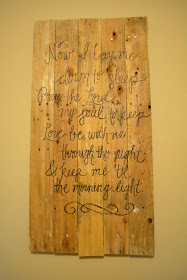 Now I lay me
down to sleep
Pray the Lord
my soul to keep
Love be with me
through the night
& keep me 'til
the morning light